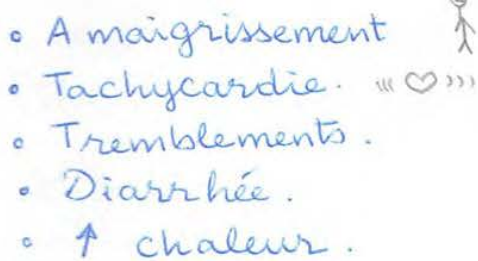 • A maigrissement
• Tachycardie.
• Tremblements.
• Diarrhée.
• ↑ chaleur.